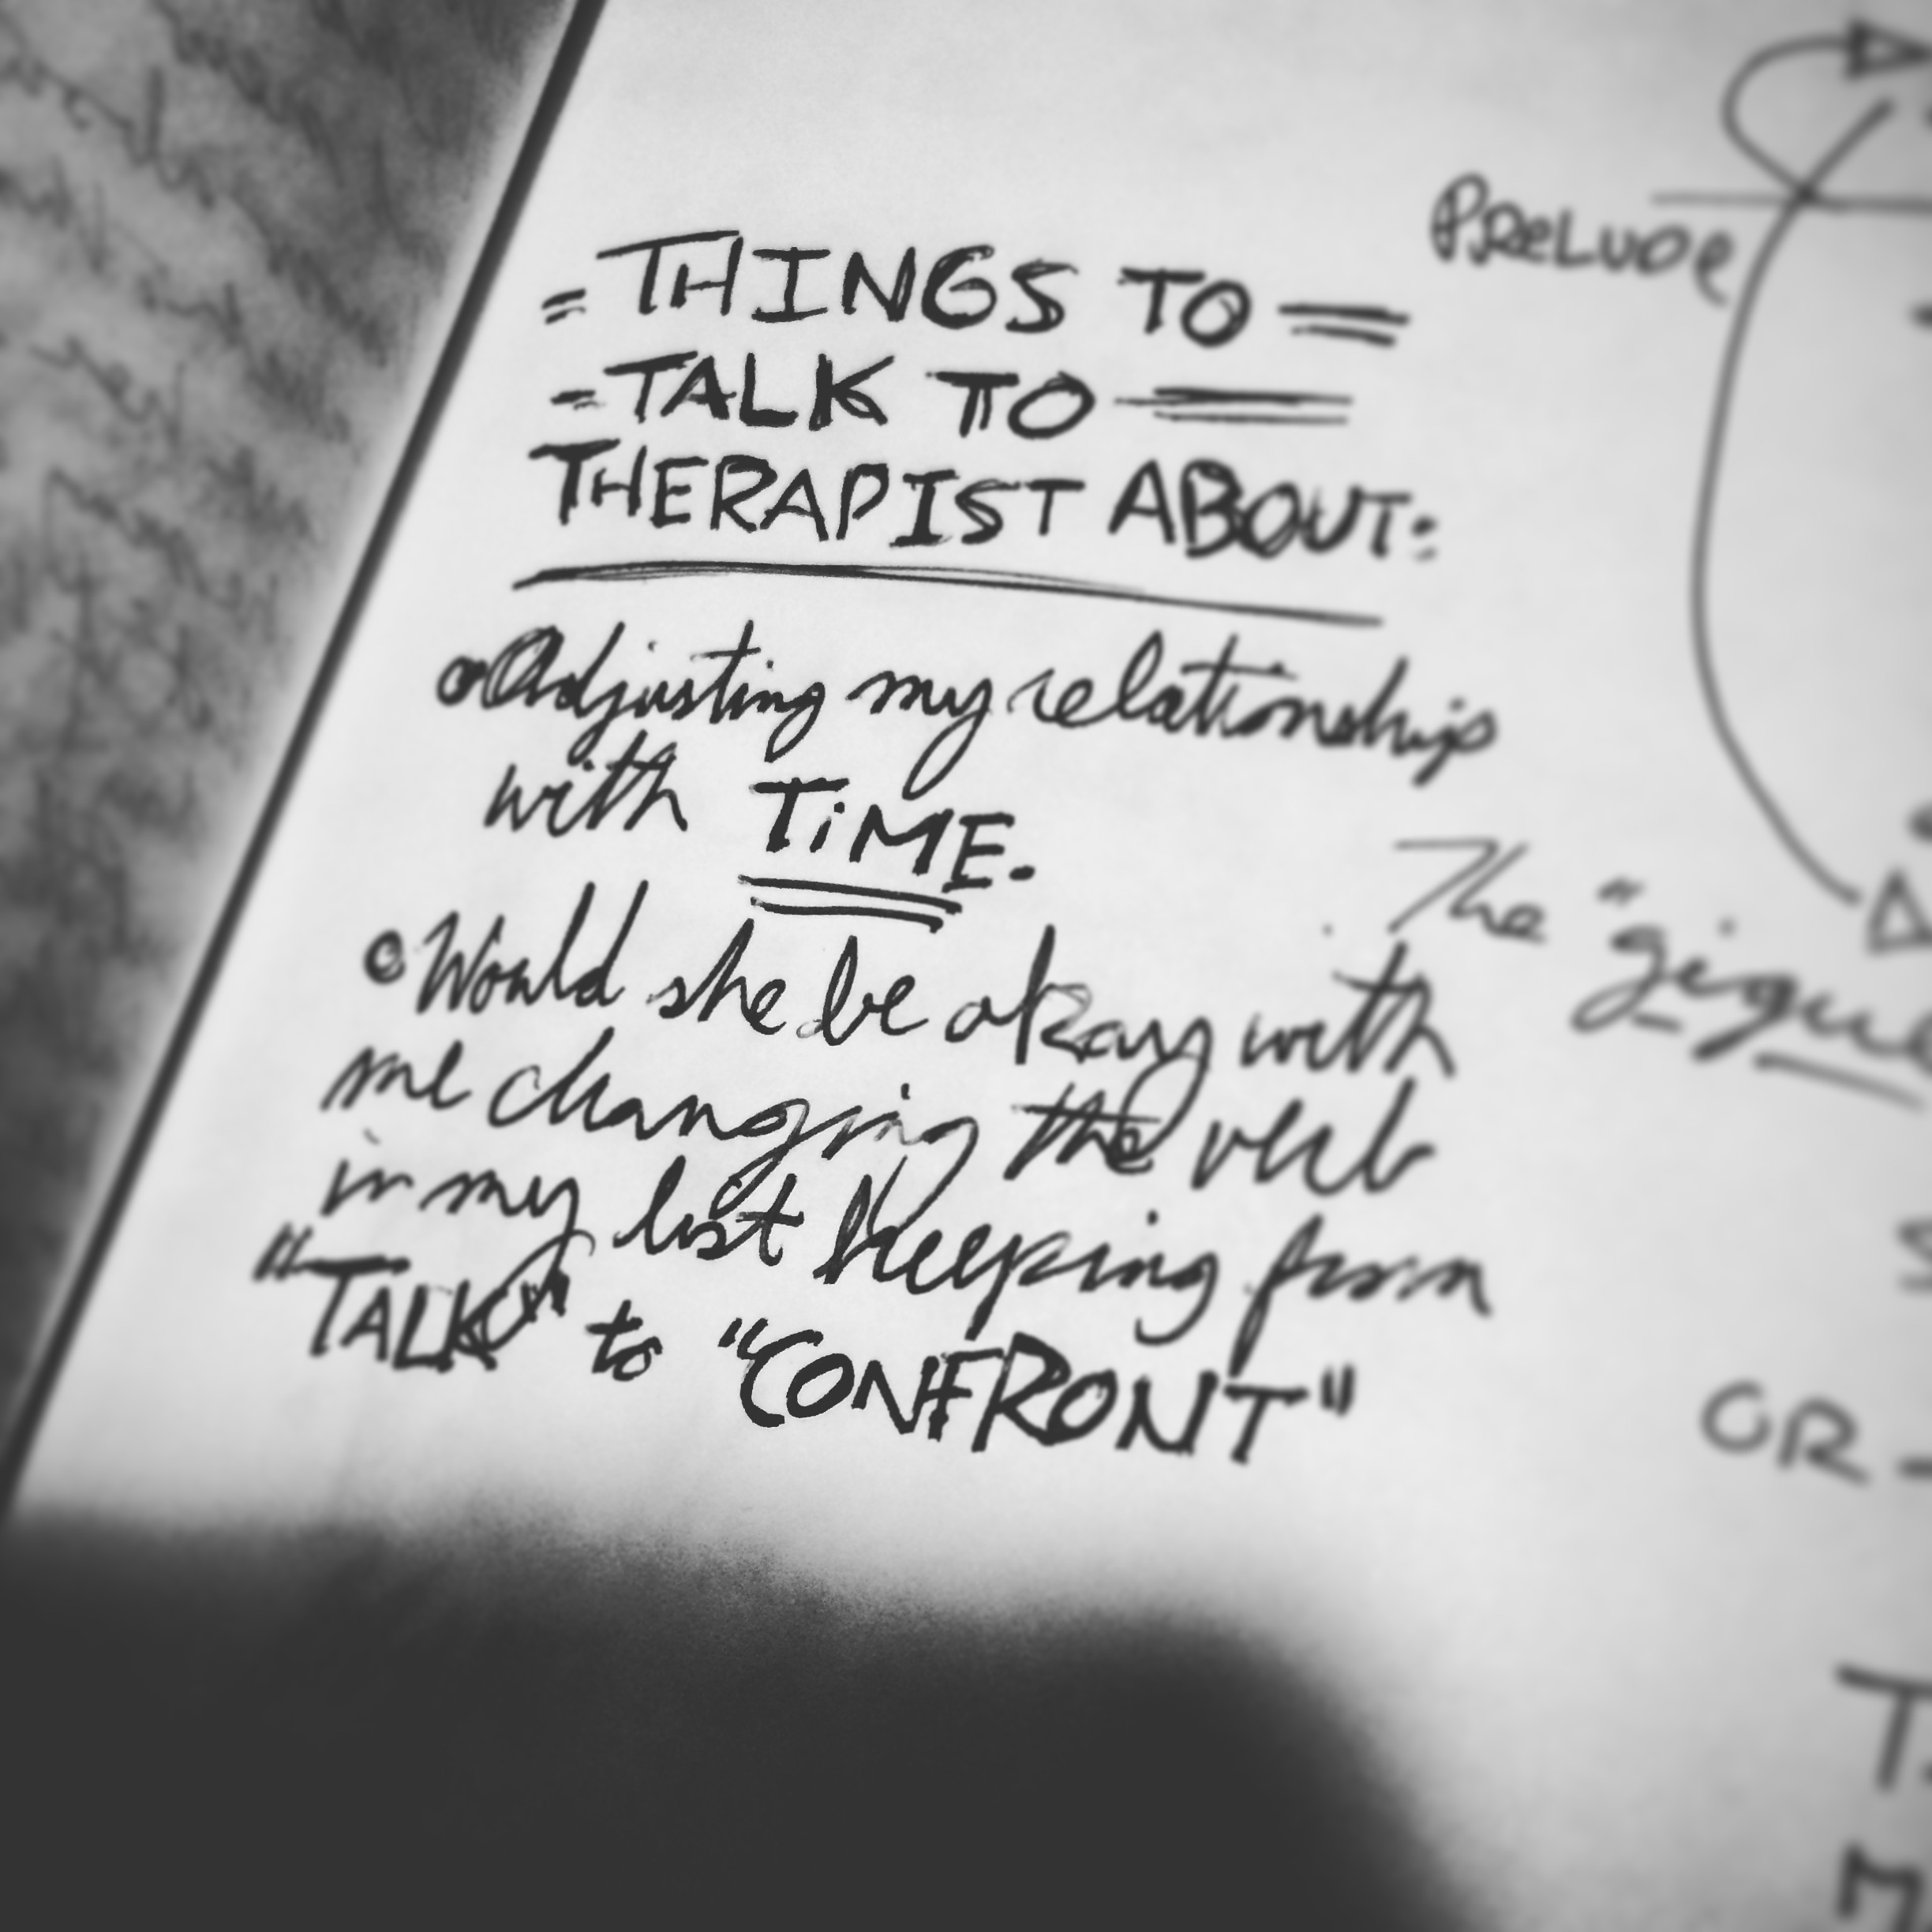 = THINGS TO =
= TALK TO =
THERAPIST ABOUT:
• Adjusting my relationship
with TiME.
• Would she be okay with
me changing the verb
in my list keeping from
"TALK" to "CONFRONT"
PReLUDe
The "gigue
OR -